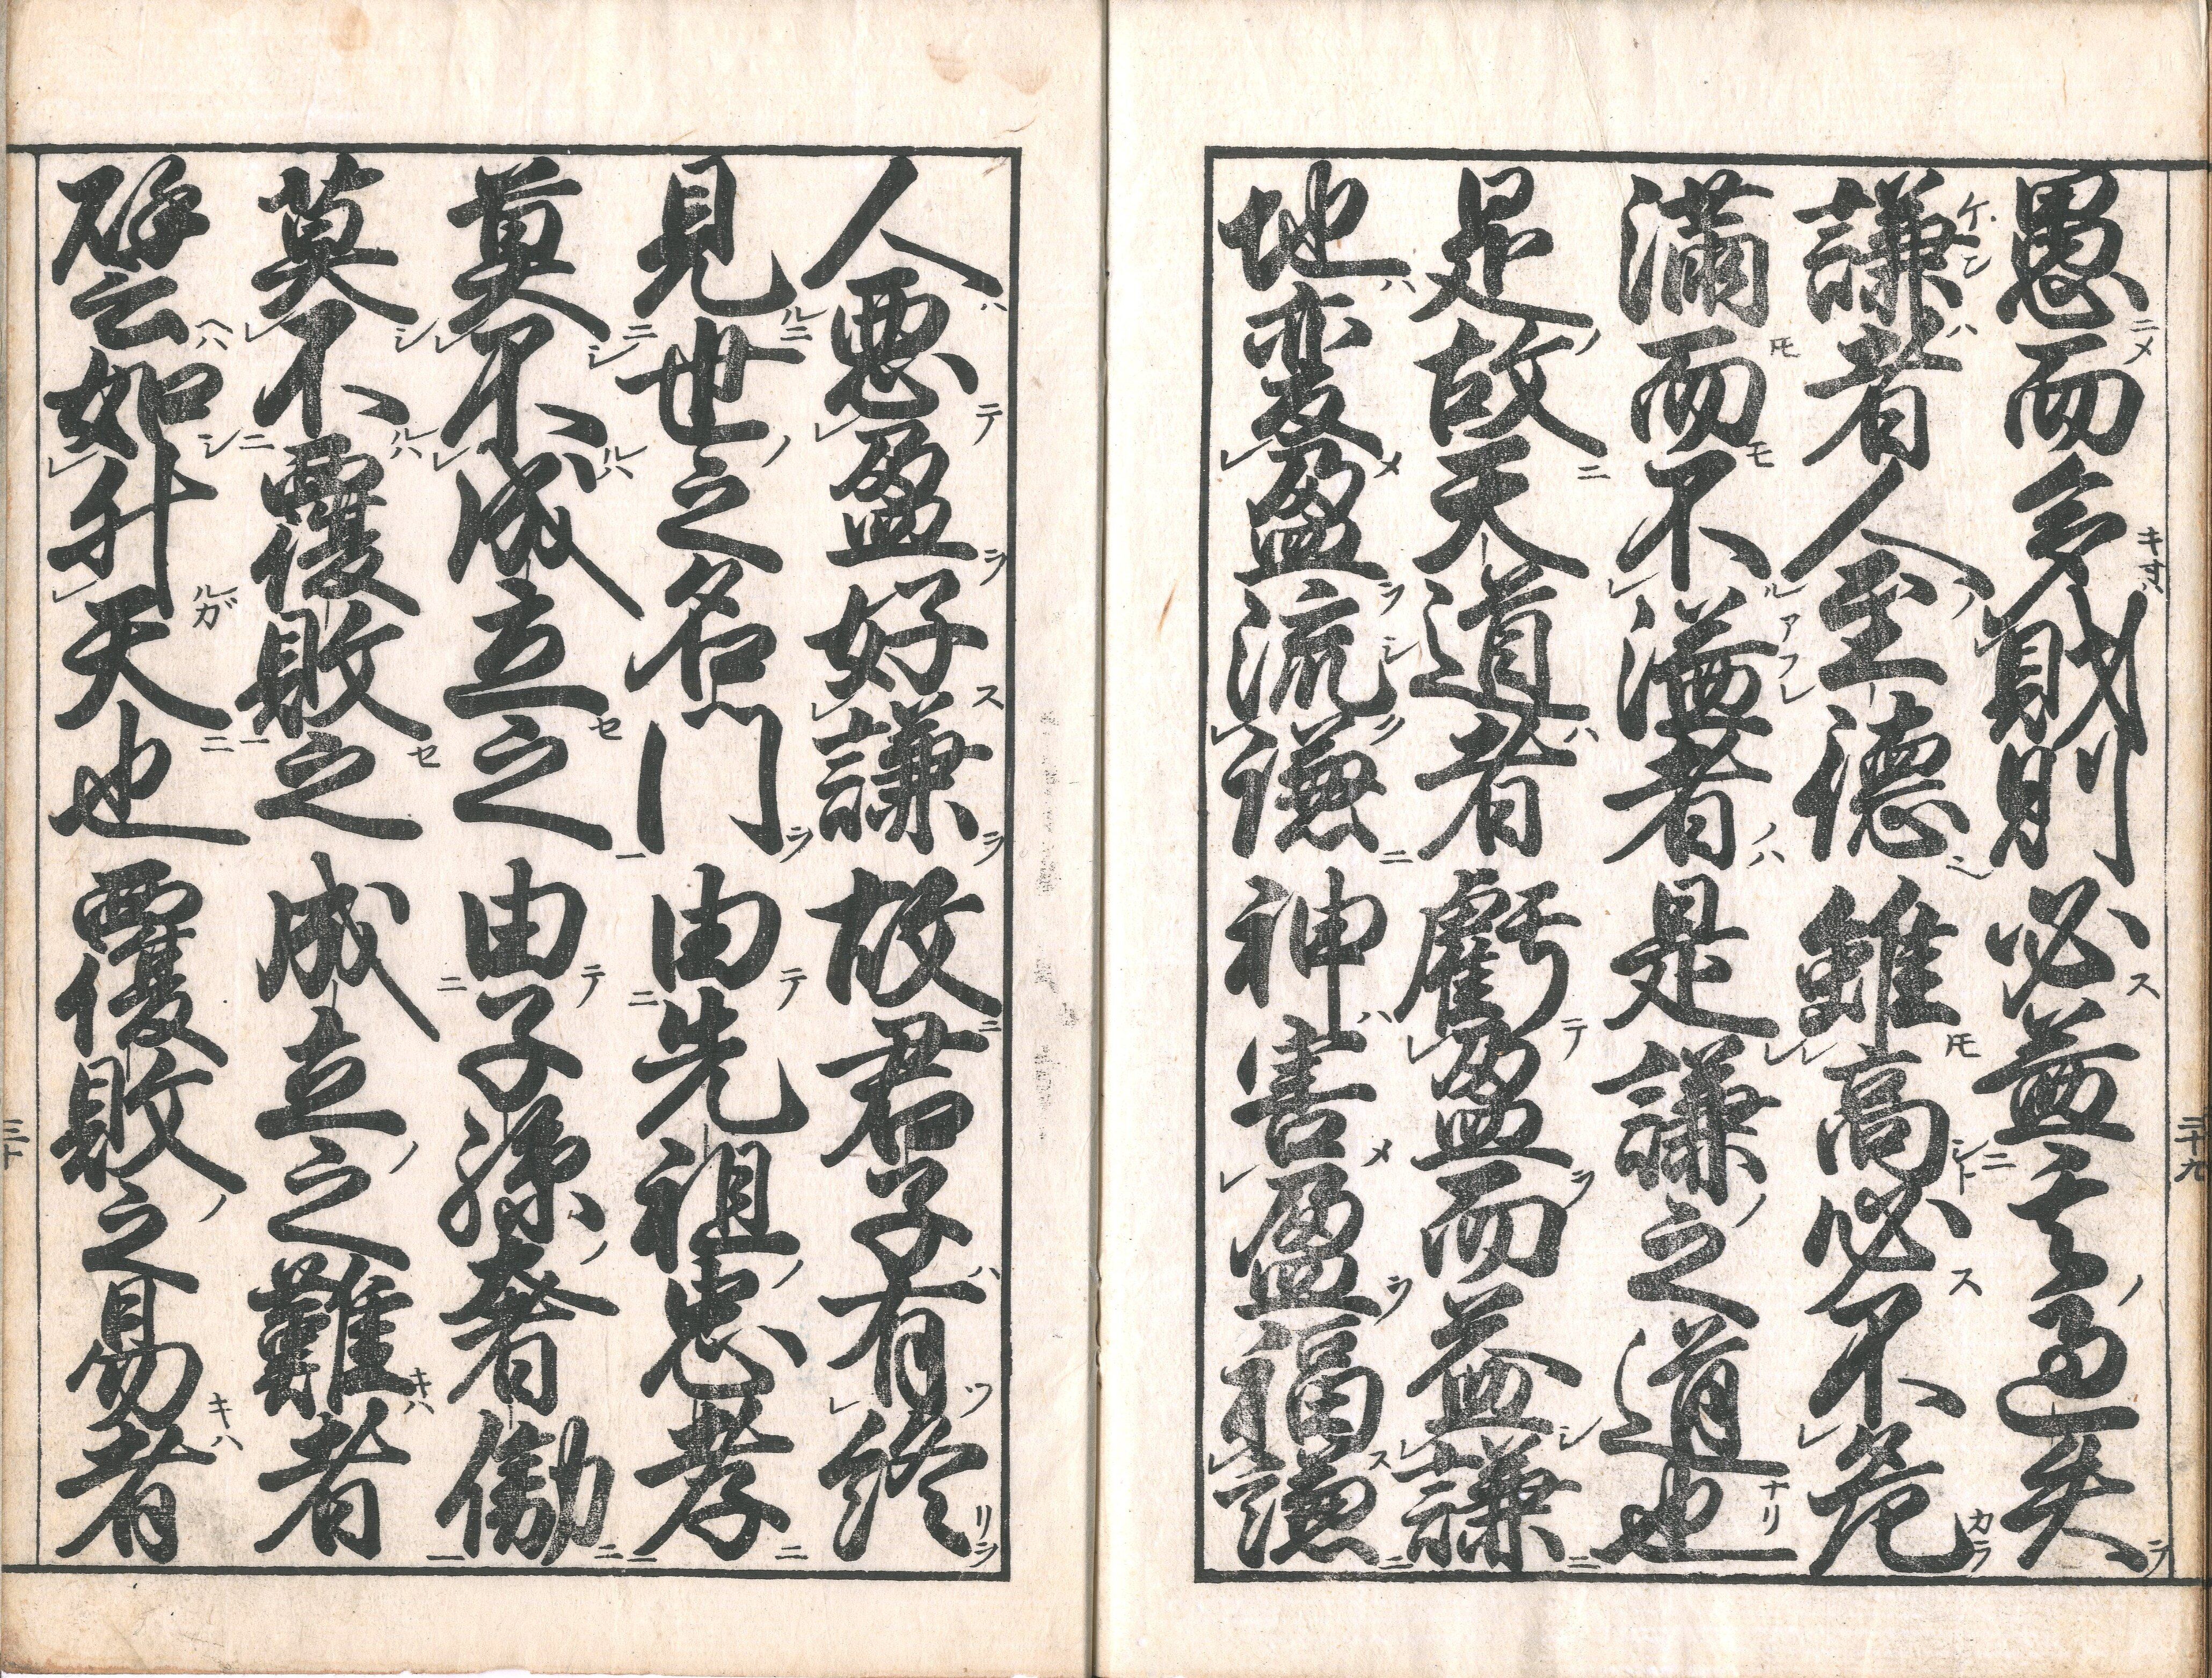 愚而多財則必益其過矣
謙者人至徳雖高必不危
満而不溢者是謙之道也
是故天道者虧盈而益謙
地変盈流謙神害盈福謙
人悪盈好謙故君子有終
見世之名門由先祖忠孝
莫不成立之由子孫奢傲
莫不覆敗之成立之難者
譬云如升天也覆敗之易者
二十九
三十